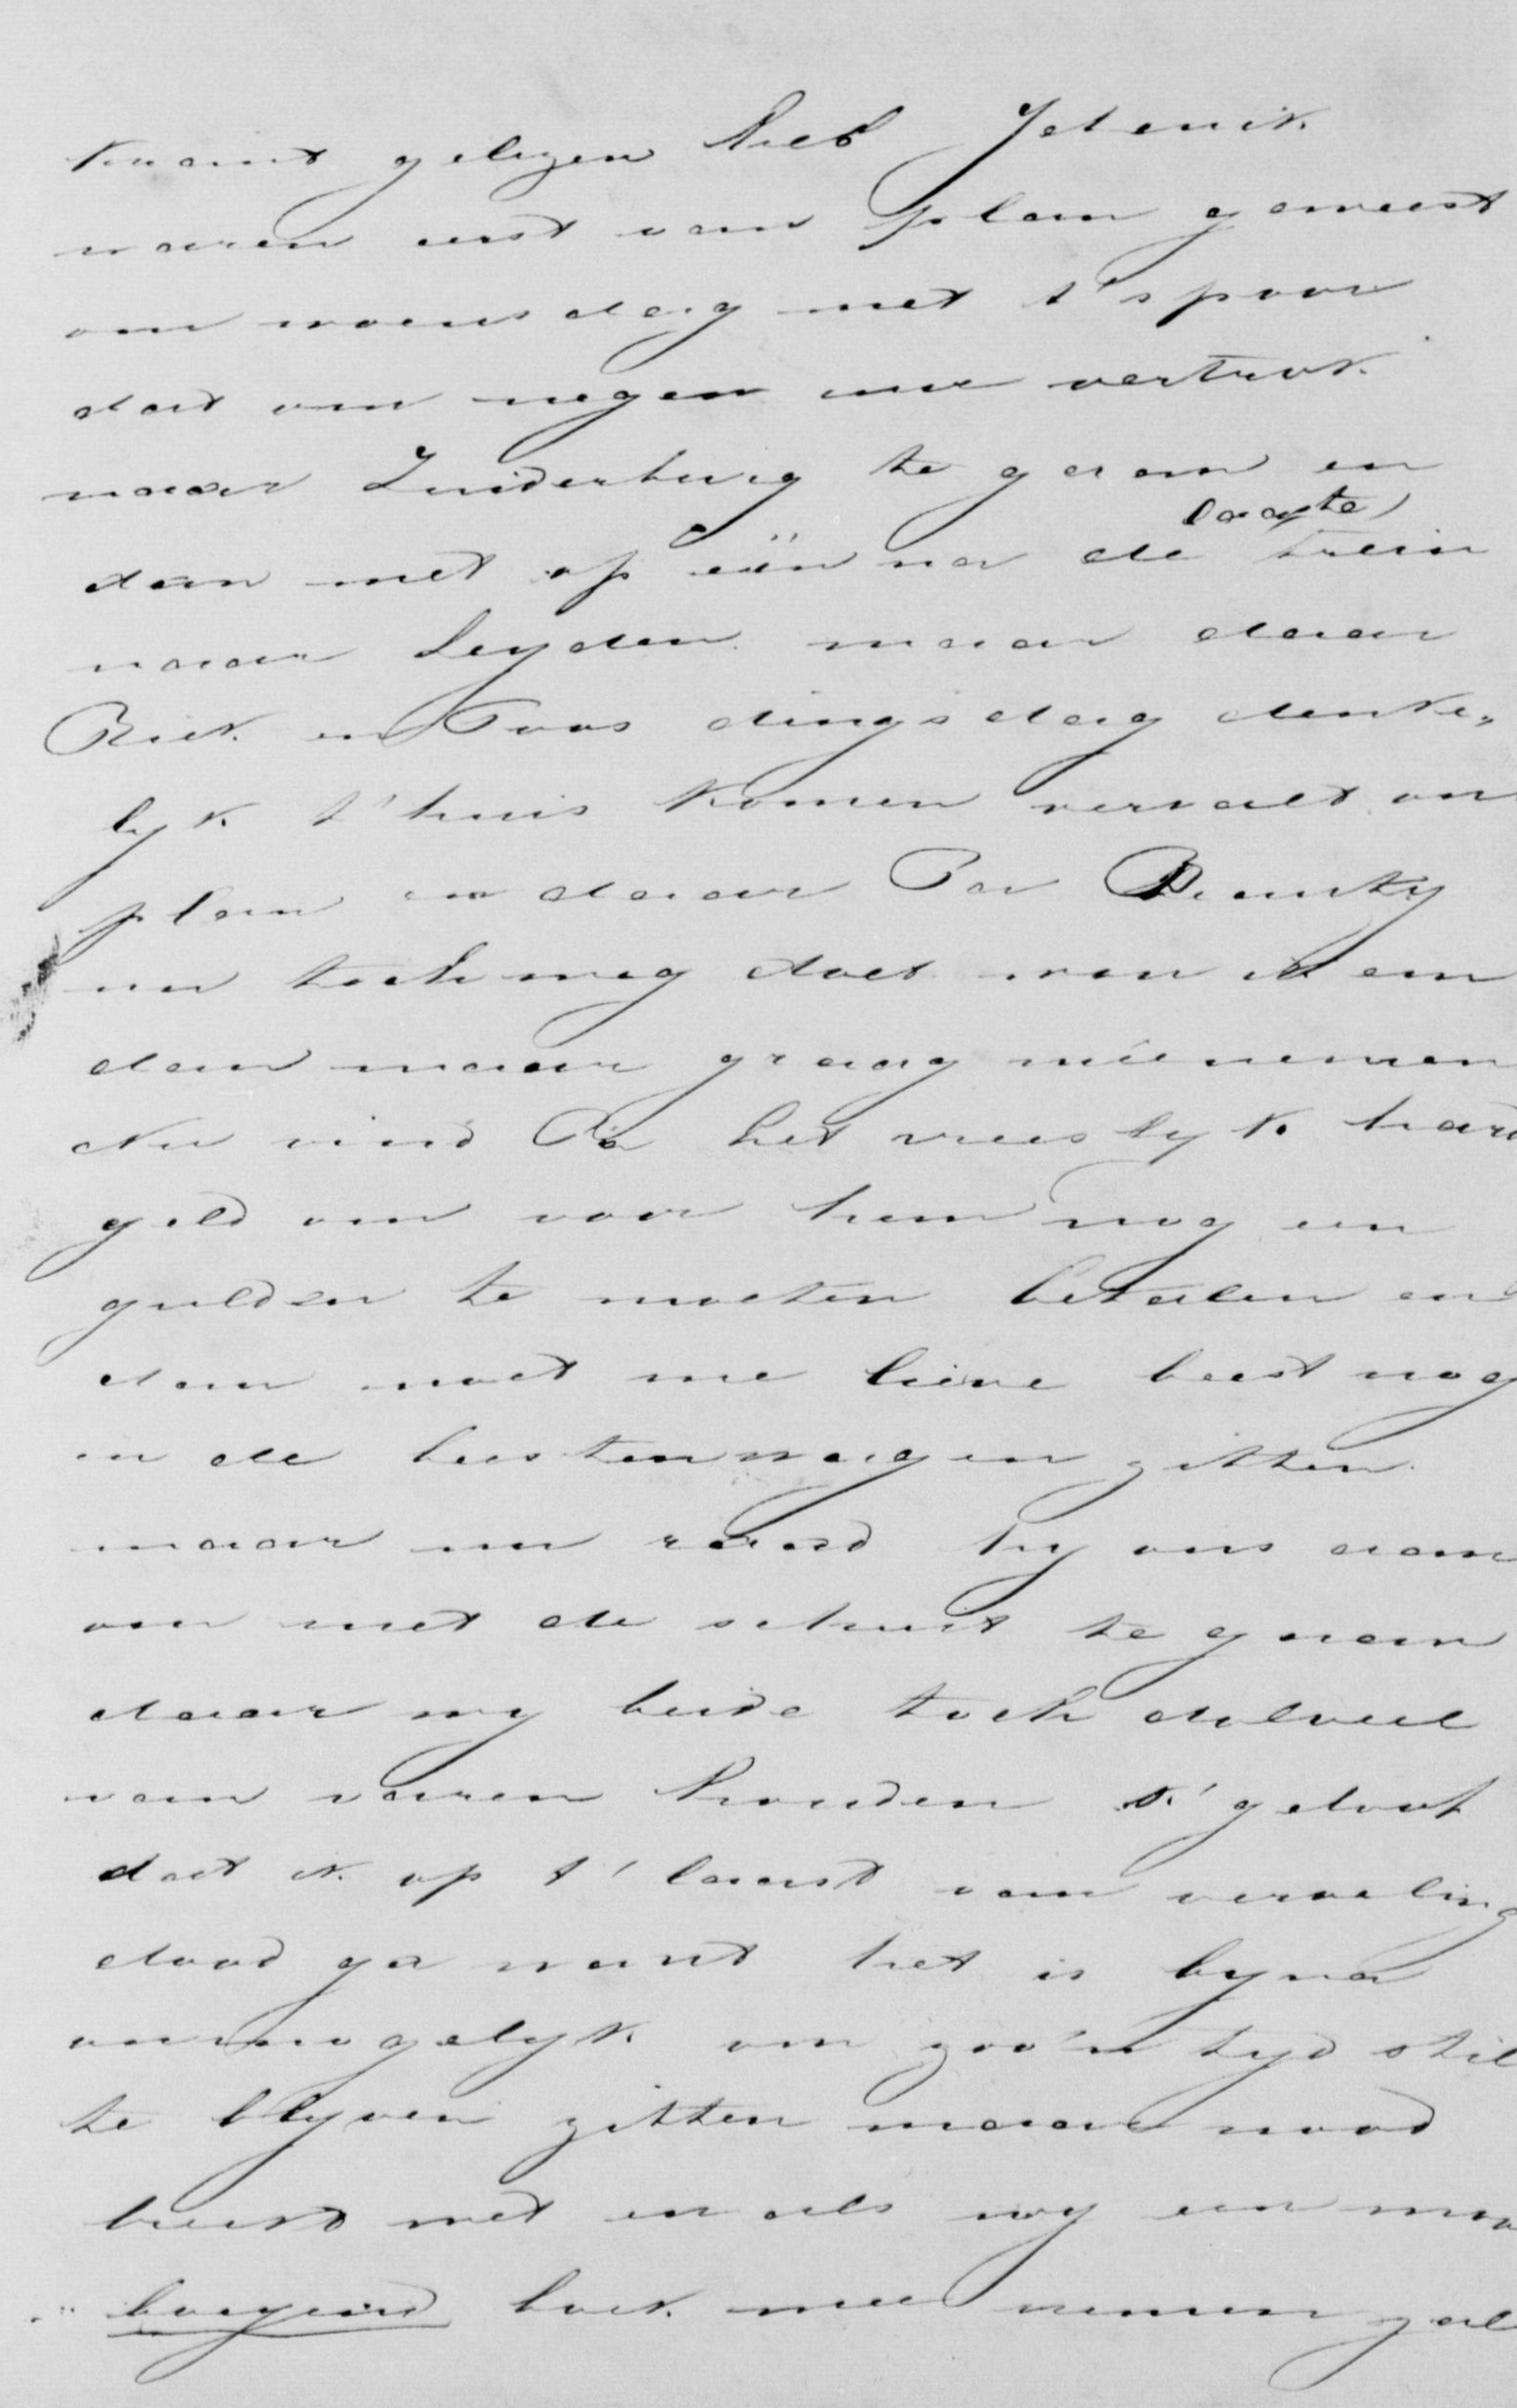 kwamt gelegen Net Jet en ik
waren eerst van plan geweest
om woensdag met t'spoor
dat om negen uur vertrok
naar Zuiderburg te gaan en
dan met op één na de laatste trein
naar Leyden maar daar
Riek en Toos dingsdag denke„
lyk t'huis komen vervalt on
plan en daar Pa
nu toch weg doet wou ik em
dan maar graag meênemen
Nu vind Pa het vreeslyk hard
geld om voor hem nog een
gulden te moeten betalen en
dan moet me lieve beest nog
in de beestenwagen zitten.
maar nu raad hy ons aan
om met de schuit te gaan
daar wy beide toch dolveel
van varen houden k'geloof
dat ik op t'laast van verveling
dood ga want het is byna
onmogelyk om zoo'n tyd stil
te blyven zitten maar nood
breekt wet en als wy een mooi
boeyend boek mee nemen zal